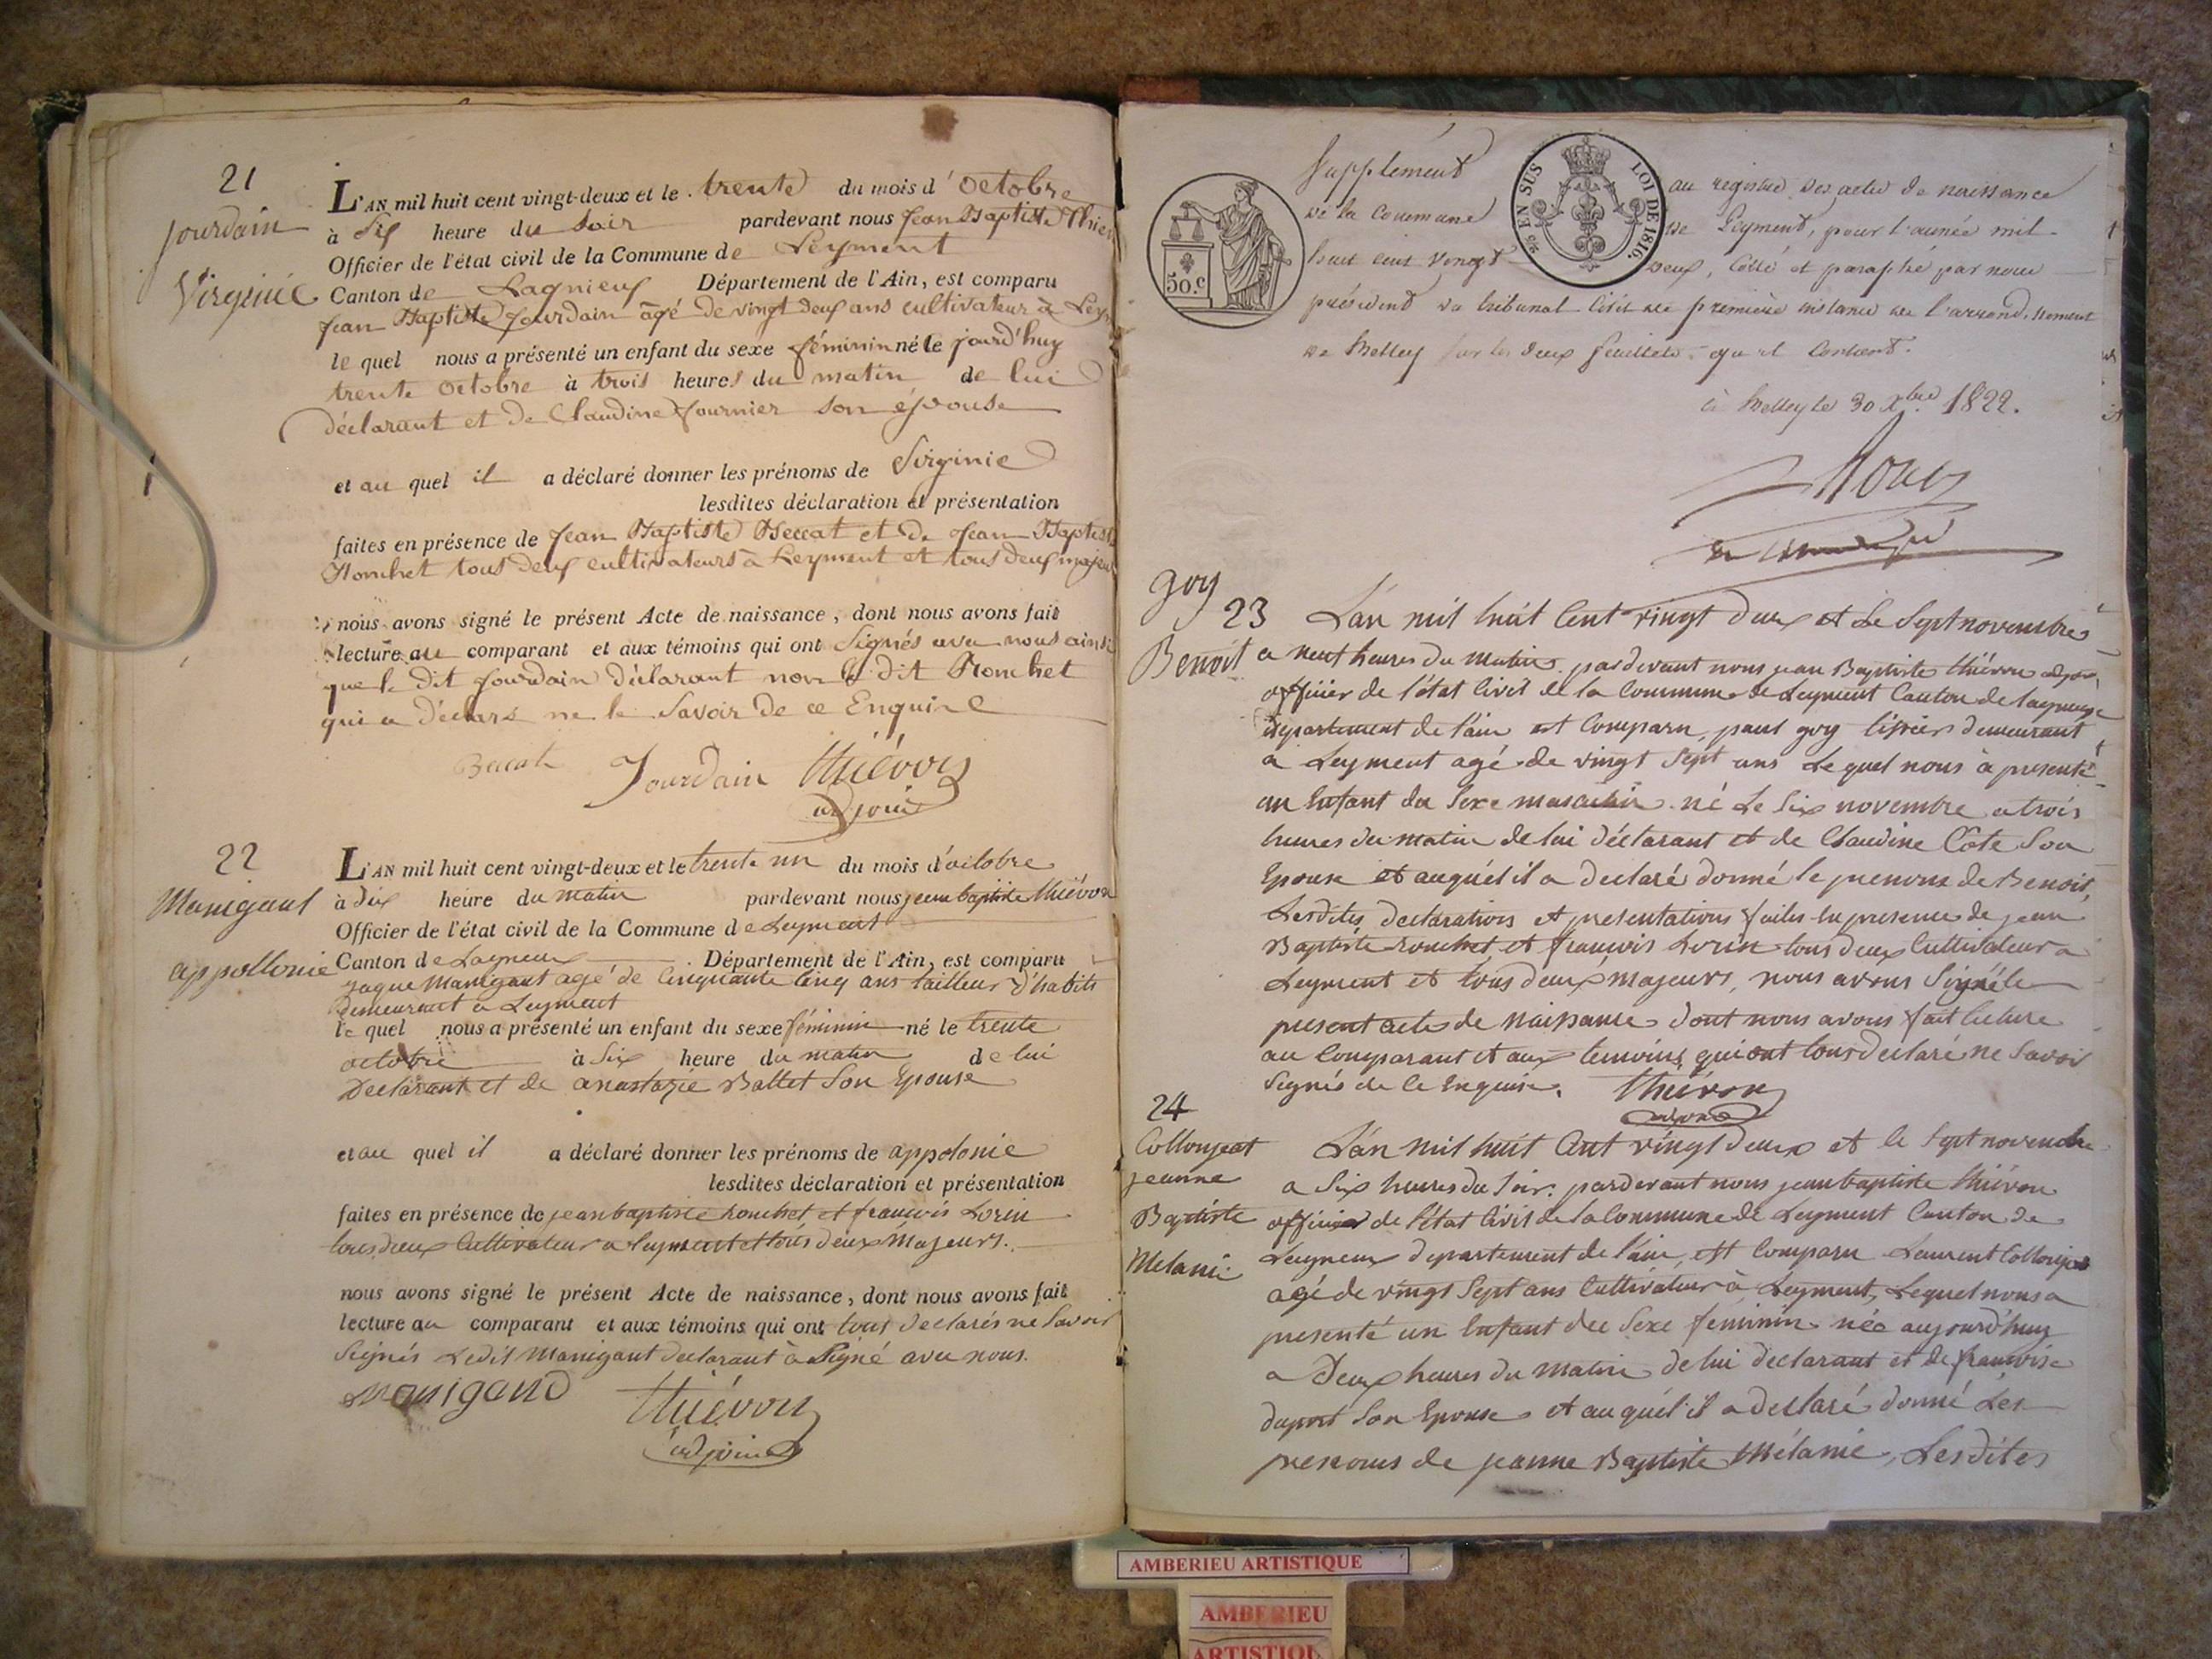 21
Jourdain
Virginie
L'AN mil huit cent vingt-deux et le trente du mois d'Octobre
à Six heure du Soir pardevant nous Jean Baptiste Thiev
Officier de l'état civil de la Commune de Leyment
Canton de Lagnieux Département de l'Ain, est comparu
Jean Baptiste Jourdain âgé de vingt deux ans cultivateur à Ley
le quel nous a présenté un enfant du sexe féminin né le jourd'huy
trente Octobre à trois heures du matin de lui
déclarant et de Claudine fournier son épouse
et au quel il a déclaré donner les prénoms de Virginie
lesdites déclaration et présentation
faites en présence de Jean Baptiste Beccat et de Jean Baptiste
Ronchet tous deux cultivateurs à Leyment et tous deux majeu
nous avons signé le présent Acte de naissance, dont nous avons fait
lecture au comparant et aux témoins qui ont Signés avec nous ainsi
que le dit Jourdain déclarant non le dit Ronchet
qui a déclaré ne le Savoir de ce Enquire
Becat Jourdain Thiévon
adjoint
22
Manigant
appollonie
L'AN mil huit cent vingt-deux et le trente un du mois d'octobre
à dix heure du matin pardevant nous jean baptiste thiévon
Officier de l'état civil de la Commune de Leyment
Canton de Lagneux Département de l'Ain, est comparu
jaque Manigant agé de Cinquante Cinq ans tailleur d'habits
demeurant a Leyment
le quel nous a présenté un enfant du sexe féminin né le trente
octobre à Six heure du matin de lui
Declarant et de anastazie Ballet Son Epouse
et au quel il a déclaré donner les prénoms de appolonie
lesdites déclaration et présentation
faites en présence de jean baptiste ronchet et francois Lorin
tous deux Cultivateur a leyment et tous deux Majeurs.
nous avons signé le présent Acte de naissance, dont nous avons fait
lecture au comparant et aux témoins qui ont tous declarés ne Savoir
Seignés Ledit Manigant declarant à Signé avec nous.
manigand Thiévon
adjoint
Supplément au registre des actes de naissance
de la Commune de Leyment, pour l'année mil
huit cent vingt deux, Cotté et paraphé par nous
président du tribunal Civil de première instance de l'arrondissement
de Belley sur les deux feuillets qu'il Contient.
à Belley le 30 Xbre 1822.
EN SUS LOI DE 1816.
50.c
goy
23
Benoit
L'an mil huit Cent vingt deux et Le Sept novembre
a neuf heures du Matin pardevant nous jean Baptiste thiévon adjoin
officier de l'état Civil de la Commune de Leyment Canton de lagneux
departement de l'ain est Comparu, paul goy demeurant
a Leyment agé de vingt Sept ans Lequel nous à presenté
un Enfant du Sexe masculin né Le Six novembre a trois
heures du matin de lui déclarant et de Claudine Cote Son
Epouse et auquel il a declaré donné le prenoms de Benoit,
Lesdites declarations et presentations faites en presence de jean
Baptiste ronchet et francois Lorin tous deux Cultivateur a
Leyment et tous deux Majeurs, nous avons Signé le
present acte de Naissance dont nous avons fait lecture
au Comparant et aux temoins qui ont tous declaré ne Savoir
Segnés de Ce Enquise. thiévon
adjoint
24
Collonjeat
jeanne
Baptiste
Melanie
L'an mil huit Cent vingt deux et le Sept novembre
a Six heures du Soir. pardevant nous jean baptiste thiévon
officier de l'état Civil de la Commune de Leyment Canton de
Lagneux departement de l'ain, est Comparu Laurent Collonjeat
agé de vingt Sept ans Cultivateur à Leyment, Lequel nous a
presenté un Enfant du Sexe feminin née aujourd'huy
a Deux heures du Matin de lui declarant et de francoise
dupont Son Epouse et auquel il a declaré donné Les
prenoms de jeanne Baptiste Mélanie, Lesdites
AMBERIEU ARTISTIQUE
AMBERIEU
ARTISTIQU